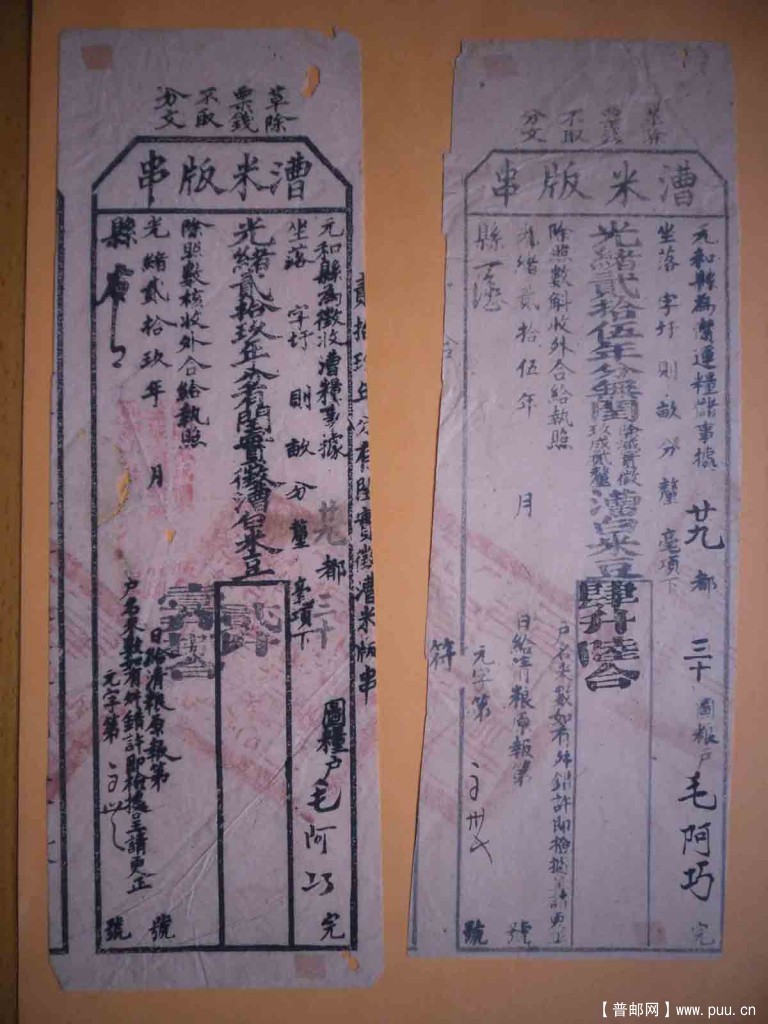 草除
票錢
不取
分文
漕米版串
貳拾玖年分有閏實徵漕米版串
元和縣為徵收漕糧事據 廿九 都 三十 圖糧户 毛阿巧 完
坐落 字圩 則 畝 分 釐 毫項下
光緒貳拾玖年分有閏實徵漕白米豆
貳升
除照數核收外合給執照
户名米數如有舛錯許即檢據呈請更正
光緒貳拾玖年 月 日給清糧原報第 號
縣 元字第 號
草除
票錢
不取
分文
漕米版串
元和縣為 運糧儲事據 廿九 都 三十 圖粮户 毛阿巧 完
坐落 字圩 則 畝 分 釐 毫項下
光緒貳拾伍年分無閏除減實徵玖成貳釐漕白米豆肆升陸合
除照數斛收外合給執照
户名米數如有舛錯許即檢據呈請更正
光緒貳拾伍年 月 日給清粮原報第 號
縣 元字第 號
符
【普邮网】www.puu.cn